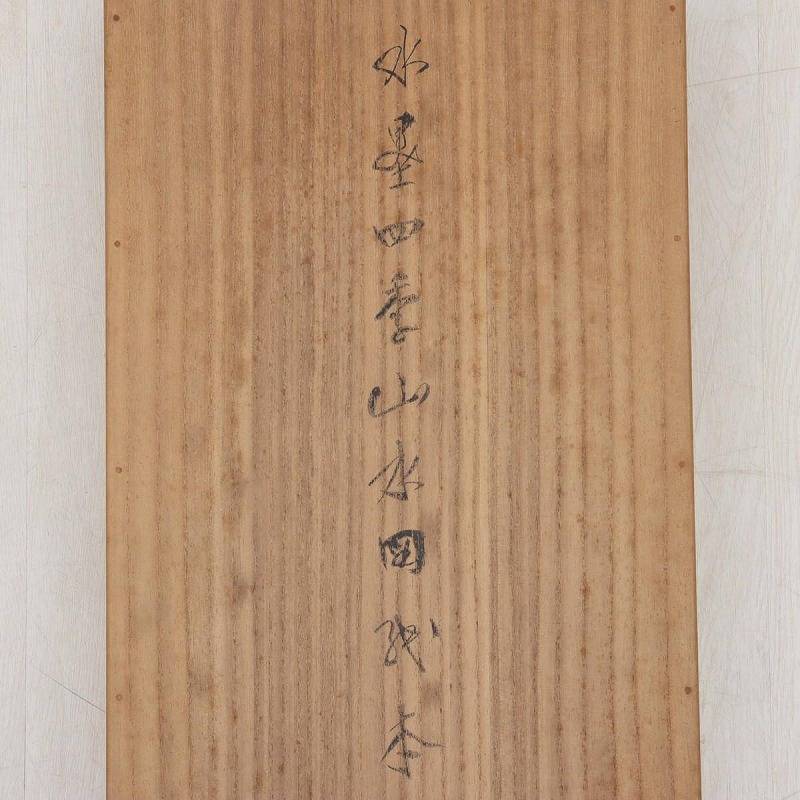 水墨四季山水図紙本